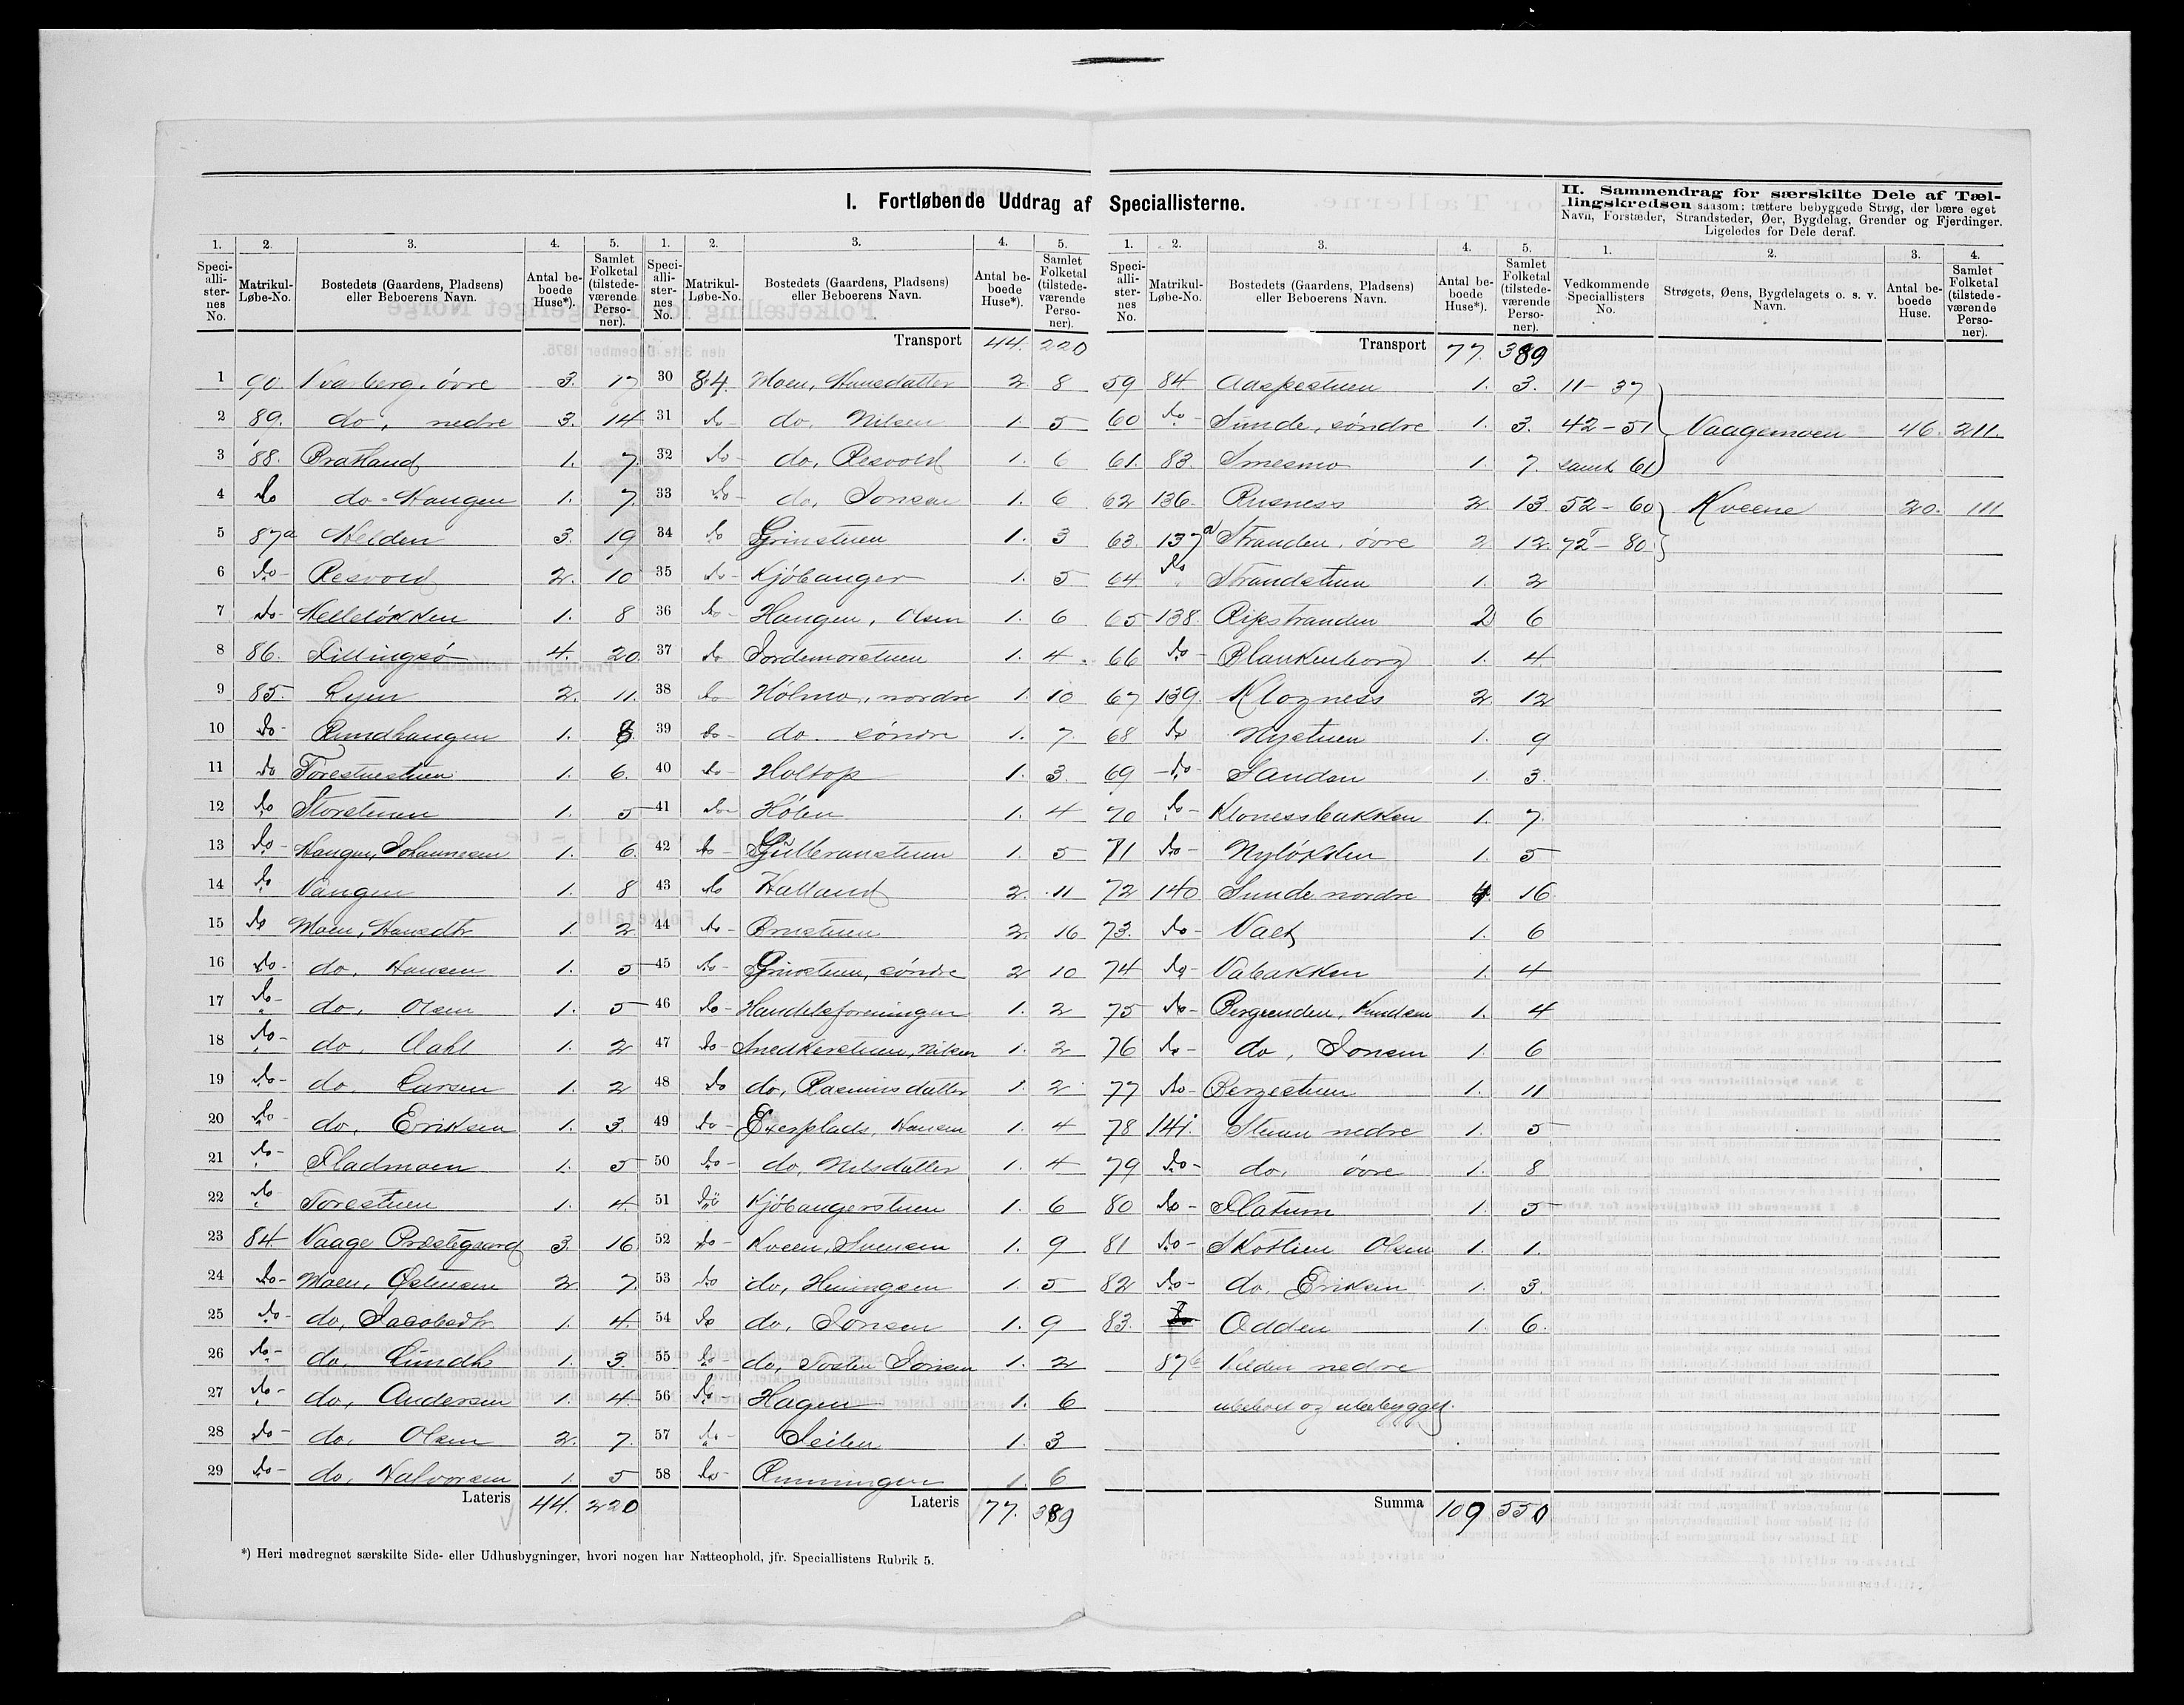 I. Fortløbende Uddrag af Speciallisterne.
II. Sammendrag for særskilte Dele af Tæl-
lingskredsen saasom: tættere bebyggede Strøg, der bære eget
Navn, Forstæder, Strandsteder, Øer, Bygdelag, Grender og Fjerdinger.
Ligeledes for Dele deraf.
1. 2. 3. 4. 5.
Speciallisternes No. Matrikul-Løbe-No. Bostedets (Gaardens, Pladsens) eller Beboerens Navn. Antal beboede Huse*). Samlet Folketal (tilstedeværende Personer).
1 90. Kvarberg, øvre 3. 17
2 89. do, nedre 3. 14
3 88. Bratland 1. 7.
4 do do - Haugen 1. 7.
5 87a Helden 3. 19
6 do- Resvold 2. 10
7 do- Helleløkken 1. 8
8 86. Fillingsø 4. 20
9 85. Lyen 2. 11.
10 do- Rundhaugen 1. 8.
11 do Forestuestuen 1. 6.
12 do Storstuen 1. 5
13 do- Haugen, Johannesen 1. 6.
14 do Vangen 1. 8
15 do Moen, Hansdtr 1. 2
16 do- do, Hansen 1. 5
17 do- do, Olsen 1. 5
18 do- do, Dahl 1. 2
19 do- do, Larsen 1. 2
20 do- do, Eriksen 1. 3.
21 do- Fladmoen 1. 5
22 do Torestuen 1. 4.
23 84. Vaage Præstegaard 3. 16
24 do- Moen, Østensen 2. 7.
25 do- do, Jacobsdtr 1. 4.
26 do- do, Lundh 1. 3.
27 do- do, Andersen 1. 4.
28 do- do, Olsen 2. 7.
29 do- do, Halvorsen 1. 5
Lateris 44. 220
1. 2. 3. 4. 5.
Speciallisternes No. Matrikul-Løbe-No. Bostedets (Gaardens, Pladsens) eller Beboerens Navn. Antal beboede Huse*). Samlet Folketal (tilstedeværende Personer).
Transport 44. 220
30 84. Moen, Hansdatter 2 8
31 do- do, Nilsen 1. 5
32 do- do, Resvold 1. 6
33 do- do, Jonsen 1. 6
34 do Grinstuen 1. 3
35 do- Kjøbanger 1. 5
36 do- Haugen, Olsen 1. 6
37 do Jordemorstuen 1. 4.
38 do Holmo, nordre 1. 10
39 do- do. søndre 1. 7
40 do- Holtop 1. 3.
41 do- Hølen 1. 4
42 do- 1. 5
43 do Halland 2. 11
44 do- Brustuen 2. 16
45 do- Grinstuen, søndre 2 10
46 do- Handelsforeningen 1. 2
47 do- Snedkerstuen, Nilsen 1. 2
48 do do, Rasmusdatter 1. 2
49 do- Exerplads, Hansen 1. 4
50 do- do, Nilsdatter 1. 4
51 do Kjøbangerstuen 1. 6
52 do- Kveen, Svensen 1. 9
53 do do, Heningsen 1. 5
54 do do, Jonsen 1. 9
55 do- do, Torsten Jonsen 1. 2
56 do- Hagen 1. 6
57 do- Leiten 1. 3
58 do- Rønningen 1. 6
Lateris 77. 389
1. 2. 3. 4. 5.
Speciallisternes No. Matrikul-Løbe-No. Bostedets (Gaardens, Pladsens) eller Beboerens Navn. Antal beboede Huse*). Samlet Folketal (tilstedeværende Personer).
Transport 77. 389
59 84 Aaspestuen 1. 3.
60 do- Sunde, søndre 1. 3.
61. 83. Smesmo 1. 7.
62 136. Rusness 2. 13
63. 137a Stranden, øvre 2 12.
64. do Strandstuen 1. 2
65 138. Ripstranden 2 6
66 do- Blankenborg 1. 4.
67 139. Klogness 2. 12
68 do Nystuen 1. 9
69 do- Sanden 1. 3.
70 do- Klonessbakken 1. 7.
71 do- Nyløkken 1. 5
72 140 Sunde nordre 4. 16
73. do- 1. 6
74 do- Vabakken 1. 4
75 do- Bergeenden, Knudsen 1. 4
76 do- do, Jonsen 1. 6
77 do- Bergestuen 1. 11
78 141. Stuen nedre 1. 5
79 do- do, øvre 1. 8
80 do- Flatum 1. 5
81 do- Skotlien Olsen 1. 1.
82 do- do, Eriksen 1. 3.
83. Odden 1. 6.
87b Helden nedre
ubeboet og ubebygget.
Summa 109 550
1. 2. 3. 4.
Vedkommende Speciallisters No. Strøgets, Øens, Bygdelagets o. s. v. Navn. Antal beboede Huse. Samlet Folketal (tilstedeværende Personer).
11 - 37
42 - 51 Vaagemoen 46. 211.
samt 61
52 - 60 Kveene 20. 111
72 - 80
*) Heri medregnet særskilte Side- eller Udhusbygninger, hvori nogen har Natteophold, jfr. Speciallistens Rubrik 5.